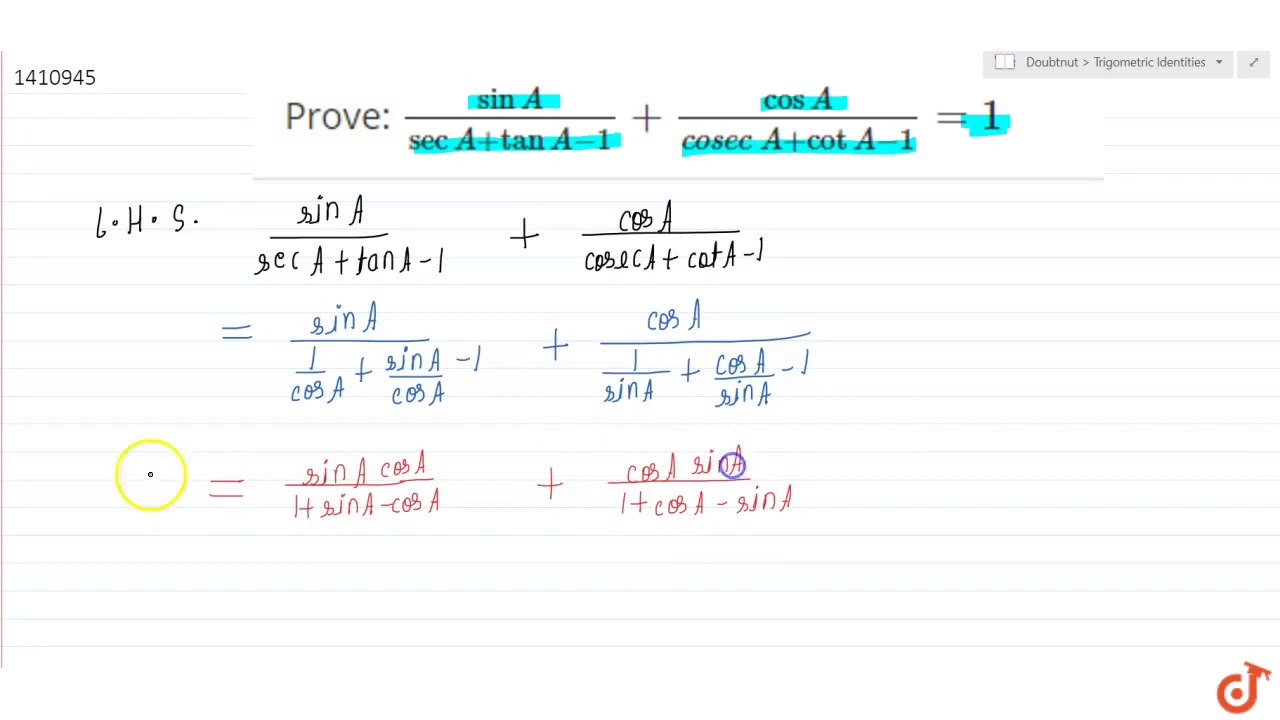 1410945
Doubtnut > Trigometric Identities
Prove: \frac{\sin A}{\sec A+\tan A-1} + \frac{\cos A}{cosec A+\cot A-1} = 1
L.H.S. \frac{sin A}{sec A+tan A-1} + \frac{cos A}{cosec A+cot A-1}
= \frac{sin A}{\frac{1}{cos A}+\frac{sin A}{cos A}-1} + \frac{cos A}{\frac{1}{sin A}+\frac{cos A}{sin A}-1}
= \frac{sin A cos A}{1+sin A-cos A} + \frac{cos A sin A}{1+cos A-sin A}